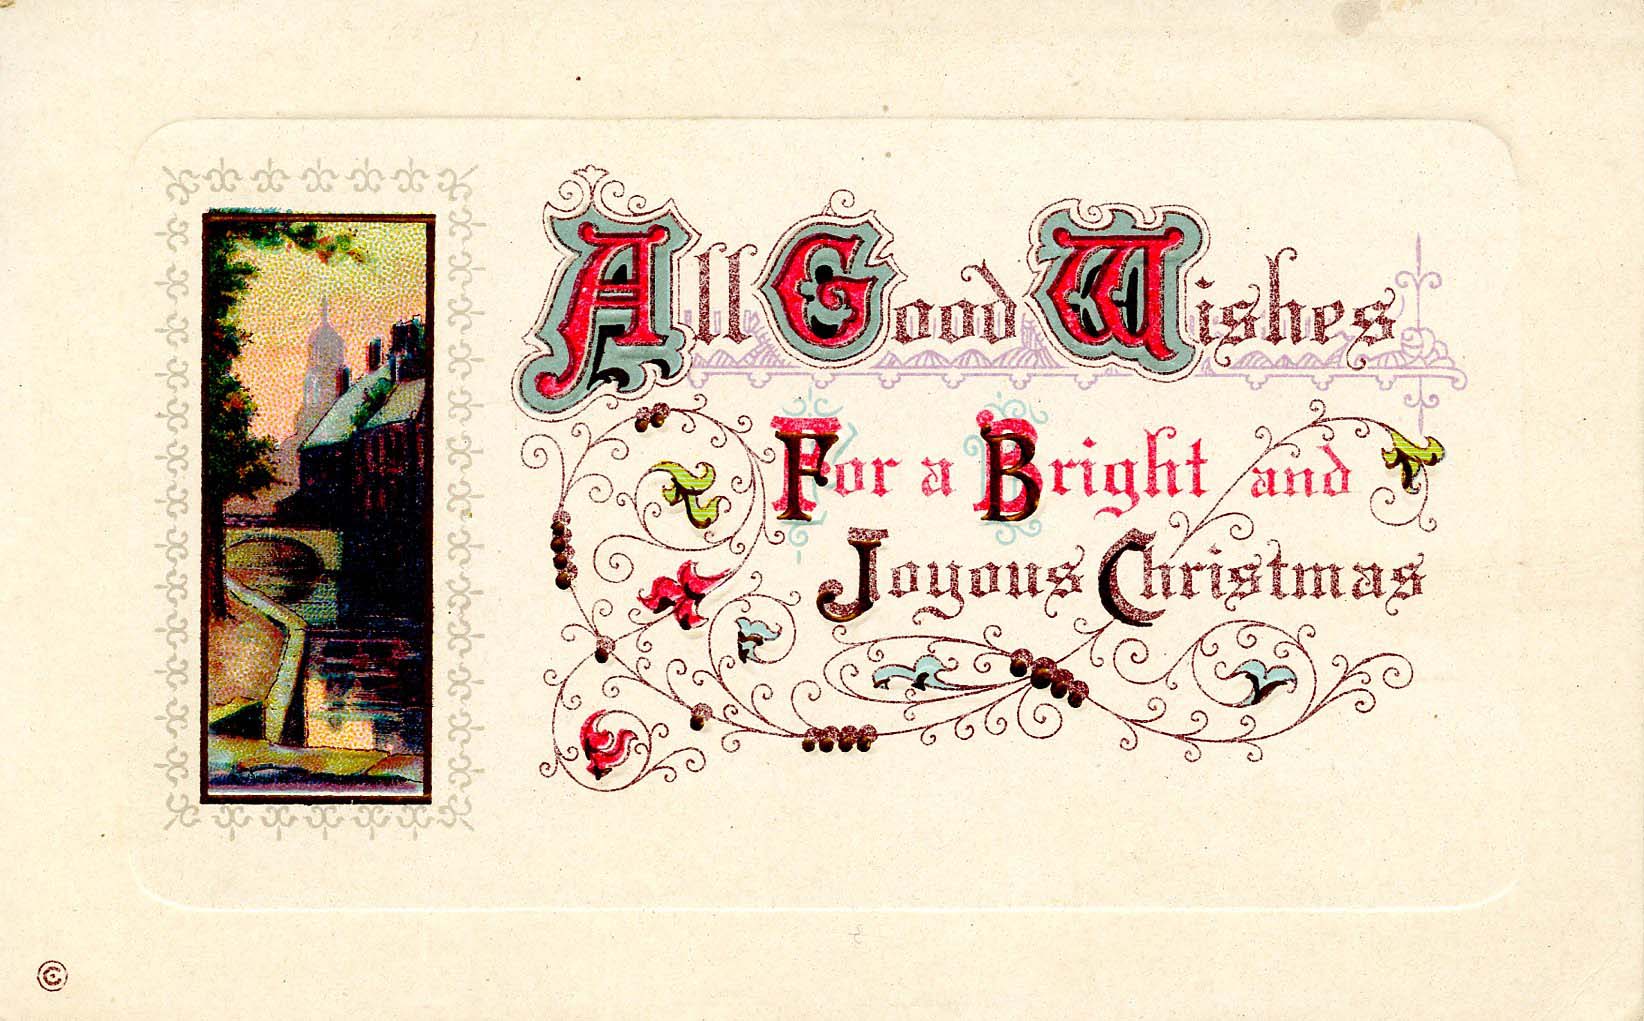 All Good Wishes
For a Bright and
Joyous Christmas
©